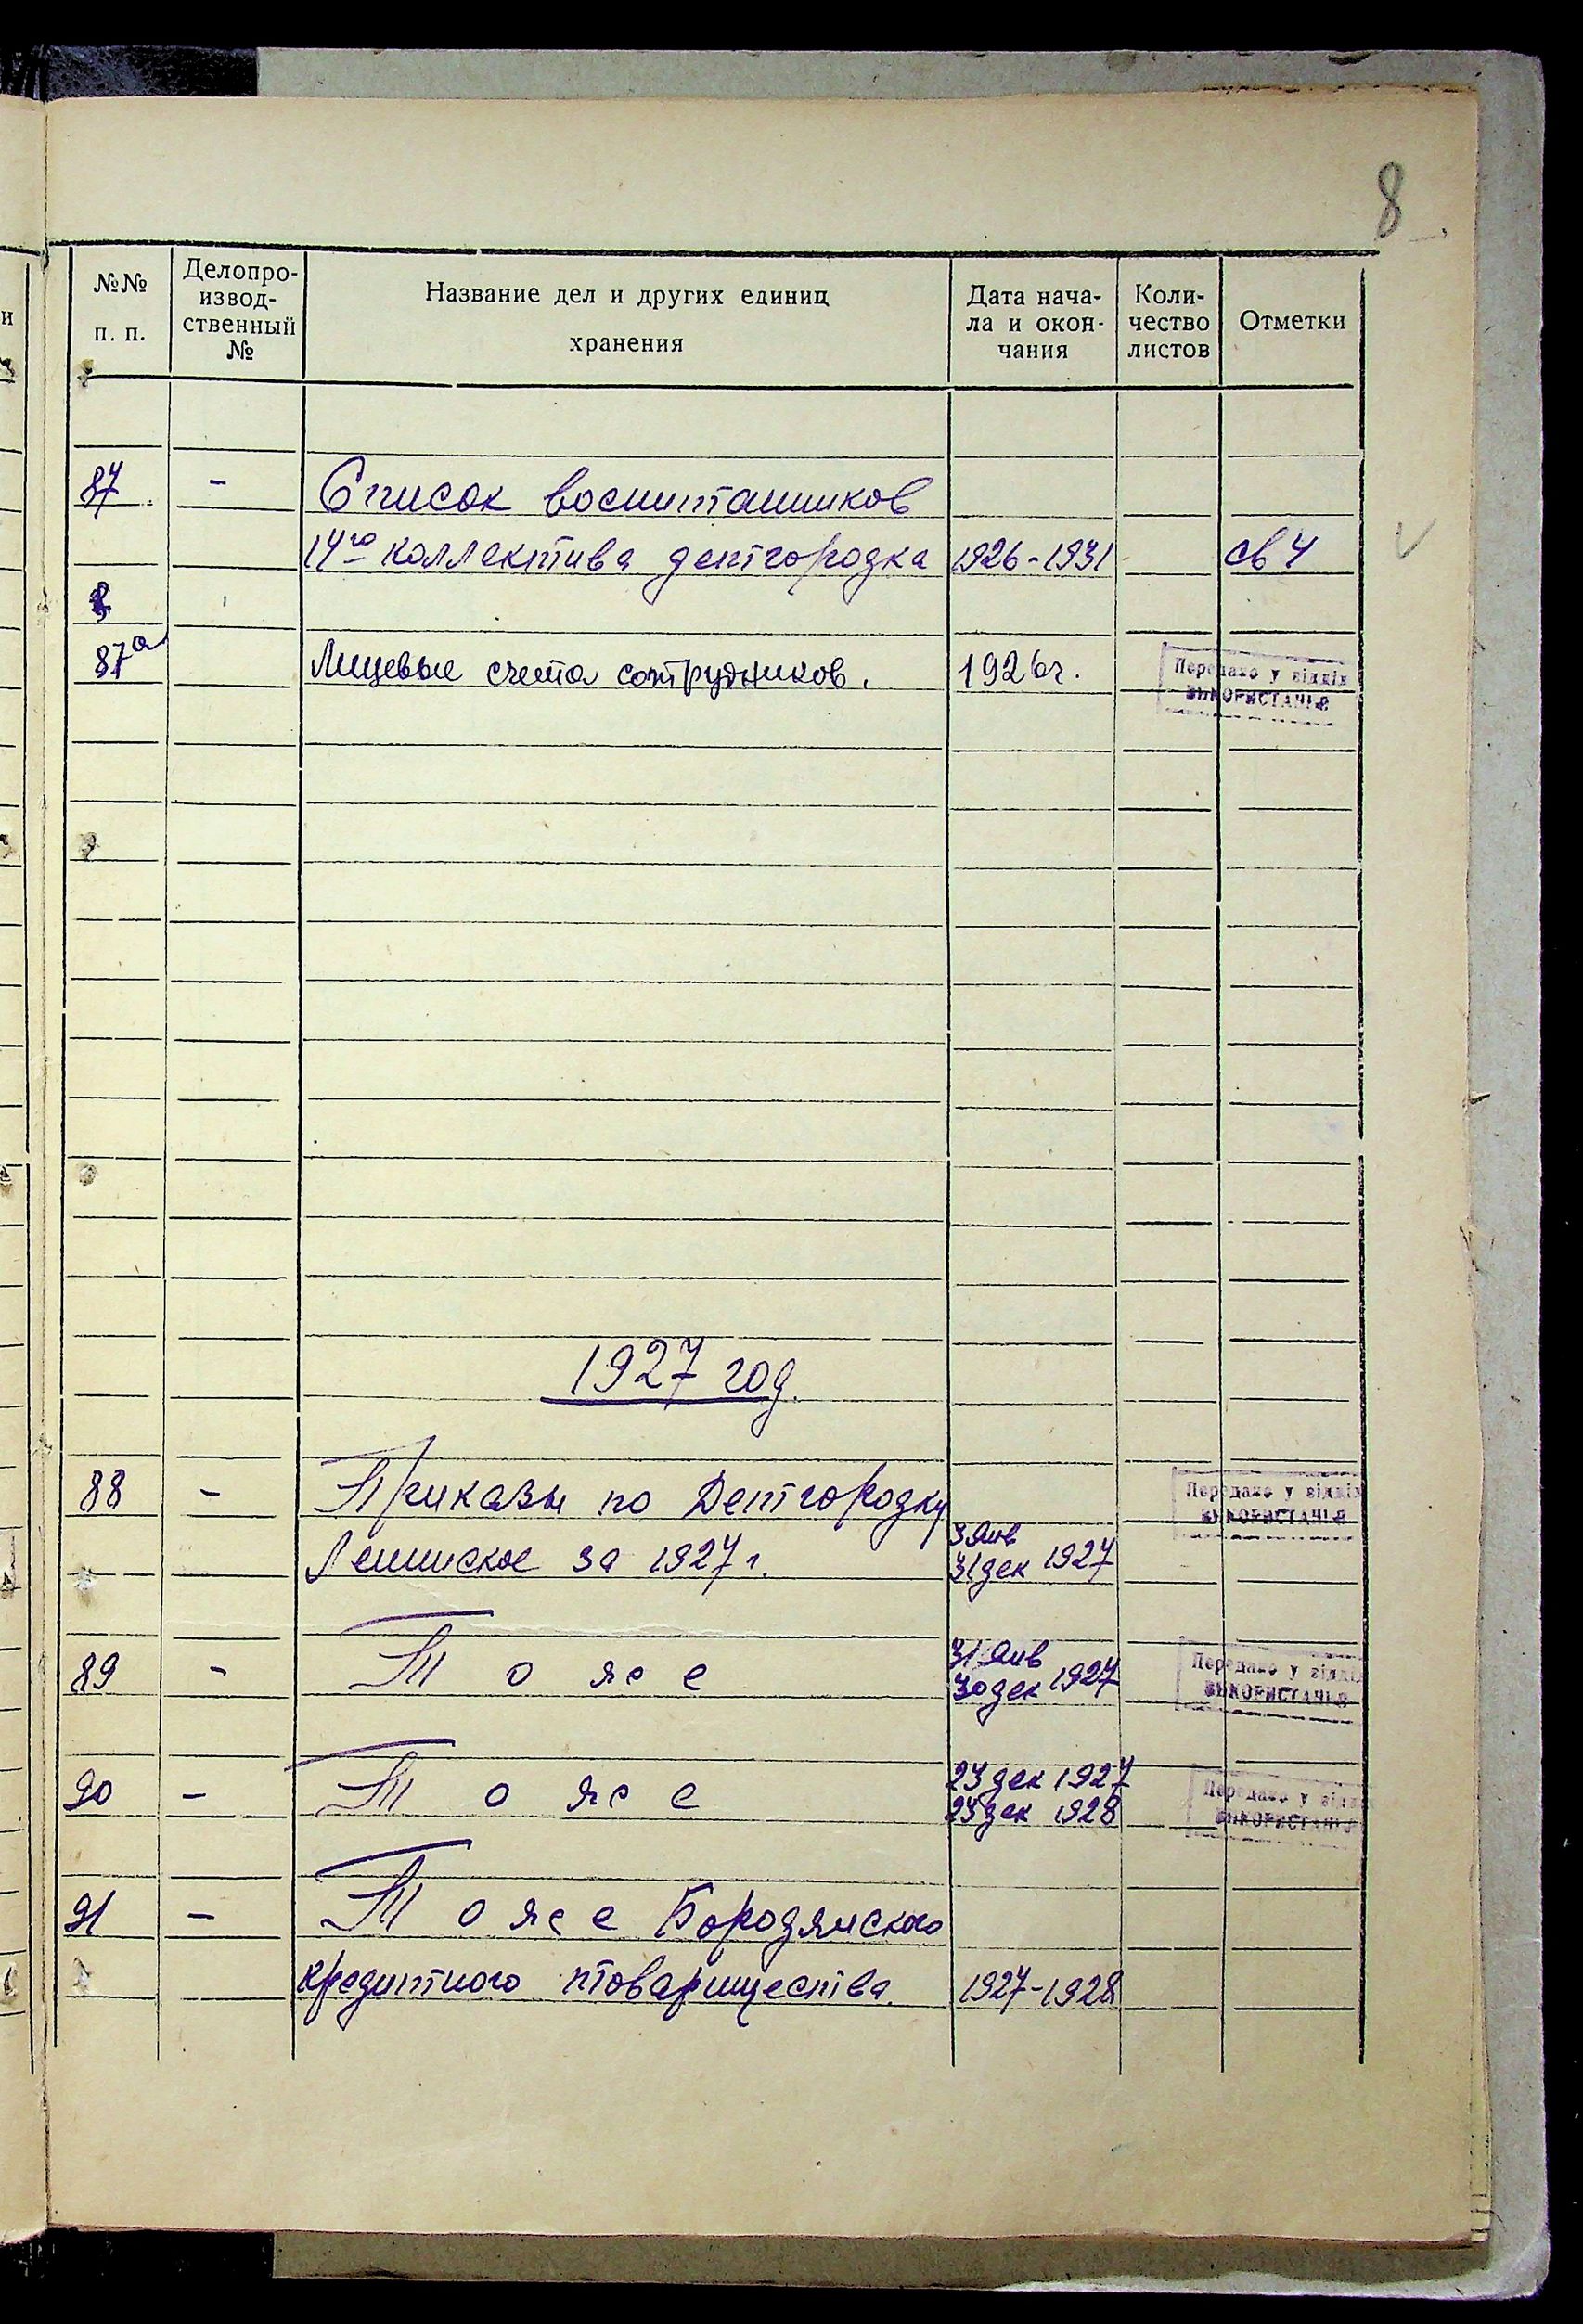 8
№№ п. п.
Делопро-
извод-
ственный
№
Название дел и других единиц
хранения
Дата нача-
ла и окон-
чания
Коли-
чество
листов
Отметки
87 - Список воспитанников
14го коллектива детгородка 1926-1931 - св 4 ✓
87а Лицевые счета сотрудников. 1926г. Передано у відділ
використання
1927 год.
88 - Приказы по Детгородку Передано у відділ
використання
Ленинское за 1927 г. 3 янв
31 дек 1927
89 - То же 31 янв
30 дек 1927 Передано у відділ
використання
90 - То же 23 дек 1927
25 дек 1928 Передано у відділ
використання
91 - То же Бородянского
кредитного товарищества. 1927-1928